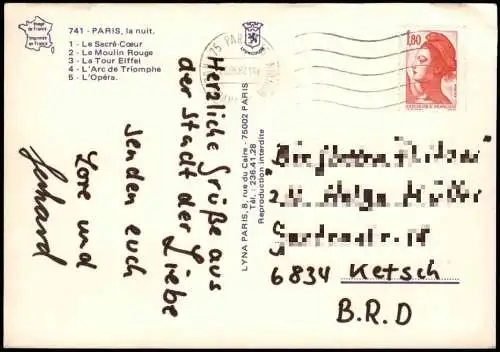 Image de France
Imprimée en France
741 - PARIS, la nuit.
1 - Le Sacré-Cœur
2 - Le Moulin Rouge
3 - La Tour Eiffel
4 - L'Arc de Triomphe
5 - L'Opéra.
Herzliche Grüße aus
der Stadt der Liebe
senden euch
Lore und
Gerhard
LYNA PARIS, 8, rue du Caire - 75002 PARIS
Tél. : 236.41.28
Reproduction interdite
75 PARIS
1,80
REPUBLIQUE FRANÇAISE
6834 Ketsch
B.R.D